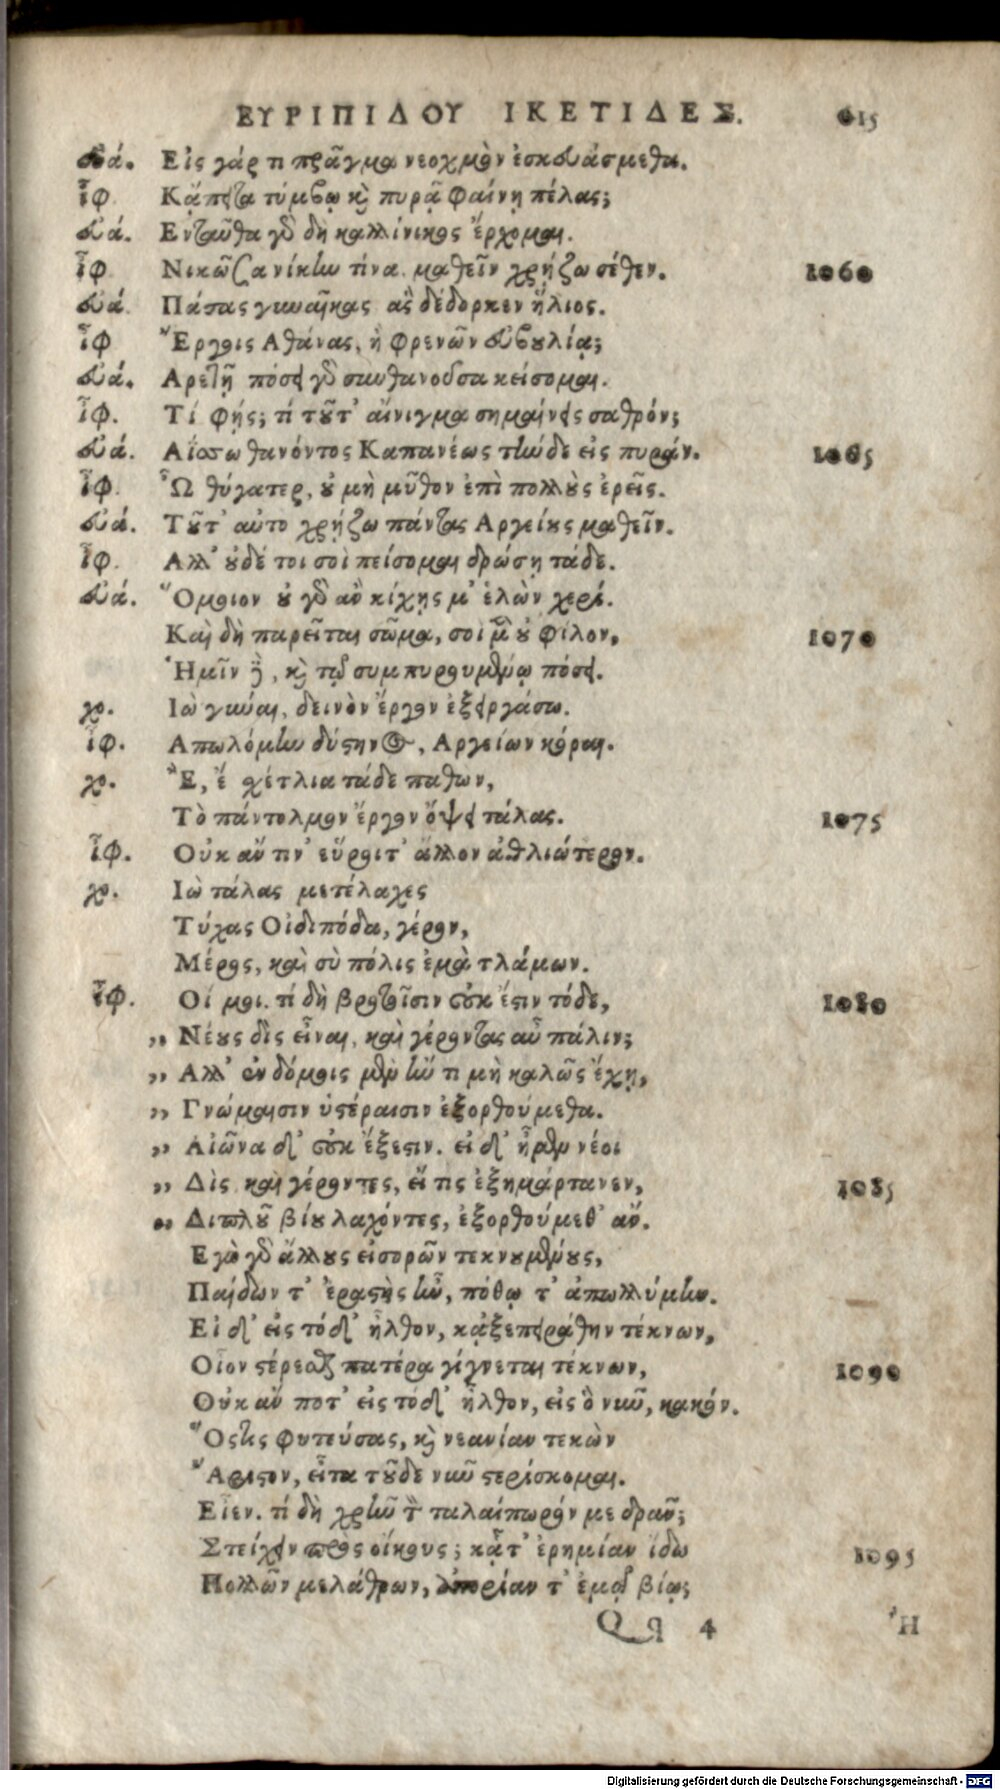 ΕΥΡΙΠΙΔΟΥ ΙΚΕΤΙΔΕΣ. 615
εὐά. Εἰς γάρ τι πρᾶγμα νεοχμὸν ἐσκευάσμεθα.
ἶφ. Κᾄπειτα τύμβῳ καὶ πυρᾷ φαίνῃ πέλας;
εὐά. Ενταῦθα γὰρ δὴ καλλίνικος ἔρχομαι.
ἶφ. Νικῶσα νίκην τίνα. μαθεῖν χρῄζω σέθεν. 1060
εὐά. Πάσας γυναῖκας ἃς δέδορκεν ἥλιος.
ἶφ Ἔργοις Αθάνας, ἢ φρενῶν εὐβουλίᾳ;
εὐά. Αρετῇ πόσει γὰρ συνθανοῦσα κείσομαι.
ἶφ. Τί φῄς; τί τοῦτ' αἴνιγμα σημαίνεις σαθρόν;
εὐά. Αΐσσω θανόντος Καπανέως τήνδε εἰς πυράν. 1065
ἶφ. Ὦ θύγατερ, οὐ μὴ μῦθον ἐπὶ πολλοὺς ἐρεῖς.
εὐά. Τοῦτ' αὐτὸ χρῄζω πάντας Αργείους μαθεῖν.
ἶφ. Αλλ' οὐδέ τοι σοὶ πείσομαι δρώσῃ τάδε.
εὐά. Ὅμοιον οὐ γὰρ αὖ κίχῃς μ' ἑλὼν χερί.
Καὶ δὴ παρεῖται σῶμα, σοὶ μὲν οὐ φίλον, 1070
Ἡμῖν δὲ, καὶ τῷ συμπυρουμένῳ πόσει.
χο. Ιὼ γύναι, δεινὸν ἔργον ἐξειργάσω.
ἶφ. Απωλόμην δύστηνος, Αργείων κόραι.
χο. Ἒ, ἒ σχέτλια τάδε παθων,
Τὸ πάντολμον ἔργον ὄψει τάλας. 1075
ἶφ. Οὐκ ἄν τιν' εὕροιτ' ἄλλον ἀθλιώτερον.
χο. Ιὼ τάλας μετέλαχες
Τύχας Οἰδιπόδα, γέρον,
Μέρος, καὶ σὺ πόλις ἐμὰ τλάμων.
ἶφ. Οἴ μοι. τί δὴ βροτοῖσιν οὐκ ἔστιν τόδε, 1080
,, Νέους δὶς εἶναι, καὶ γέροντας αὖ πάλιν;
,, Αλλ' ἐν δόμοις μὲν ἤν τι μὴ καλῶς ἔχῃ,
,, Γνώμαισιν ὑστέραισιν ἐξορθούμεθα.
,, Αἰῶνα δ' οὐκ ἔξεστιν. εἰ δ' ἦμεν νέοι
,, Δὶς καὶ γέροντες, εἴ τις ἐξημάρτανεν, 1085
,, Διπλοῦ βίου λαχόντες, ἐξορθούμεθ' ἄν.
Εγὼ γὰρ ἄλλους εἰσορῶν τεκνουμένους,
Παίδων τ' ἐραστὴς ἦν, πόθῳ τ' ἀπωλλύμην.
Εἰ δ' εἰς τόδ' ἦλθον, κᾀξεπειράθην τέκνων,
Οἷον στέρεσθαι πατέρα γίγνεται τέκνων, 1090
Οὐκ ἄν ποτ' εἰς τόδ' ἦλθον, εἰς ὃ νῦν, κακόν.
Ὅστις φυτεύσας, καὶ νεανίαν τεκὼν
Ἄριστον, εἶτα τοῦδε νῦν στερίσκομαι.
Εἶεν. τί δὴ χρῆν τὸν ταλαίπωρόν με δρᾶν;
Στείχειν πρὸς οἴκους; κᾆτ' ἐρημίαν ἴδω 1095
Πολλῶν μελάθρων, ἀπορίαν τ' ἐμῷ βίῳ;
Qq 4 Ἢ
Digitalisierung gefördert durch die Deutsche Forschungsgemeinschaft - DFG